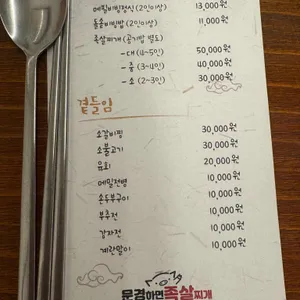 메밀비빔정식(2인이상) 13,000원
돌솥비빔밥(2인이상) 11,000원
족살찌개(공기밥 별도)
- 대(4~5인) 50,000원
- 중(3~4인) 40,000원
- 소(2~3인) 30,000원
곁들임
소갈비찜 30,000원
소불고기 30,000원
육회 20,000원
메밀전병 10,000원
손두부구이 10,000원
부추전 10,000원
감자전 10,000원
계란말이 10,000원
문경하면 족살찌개